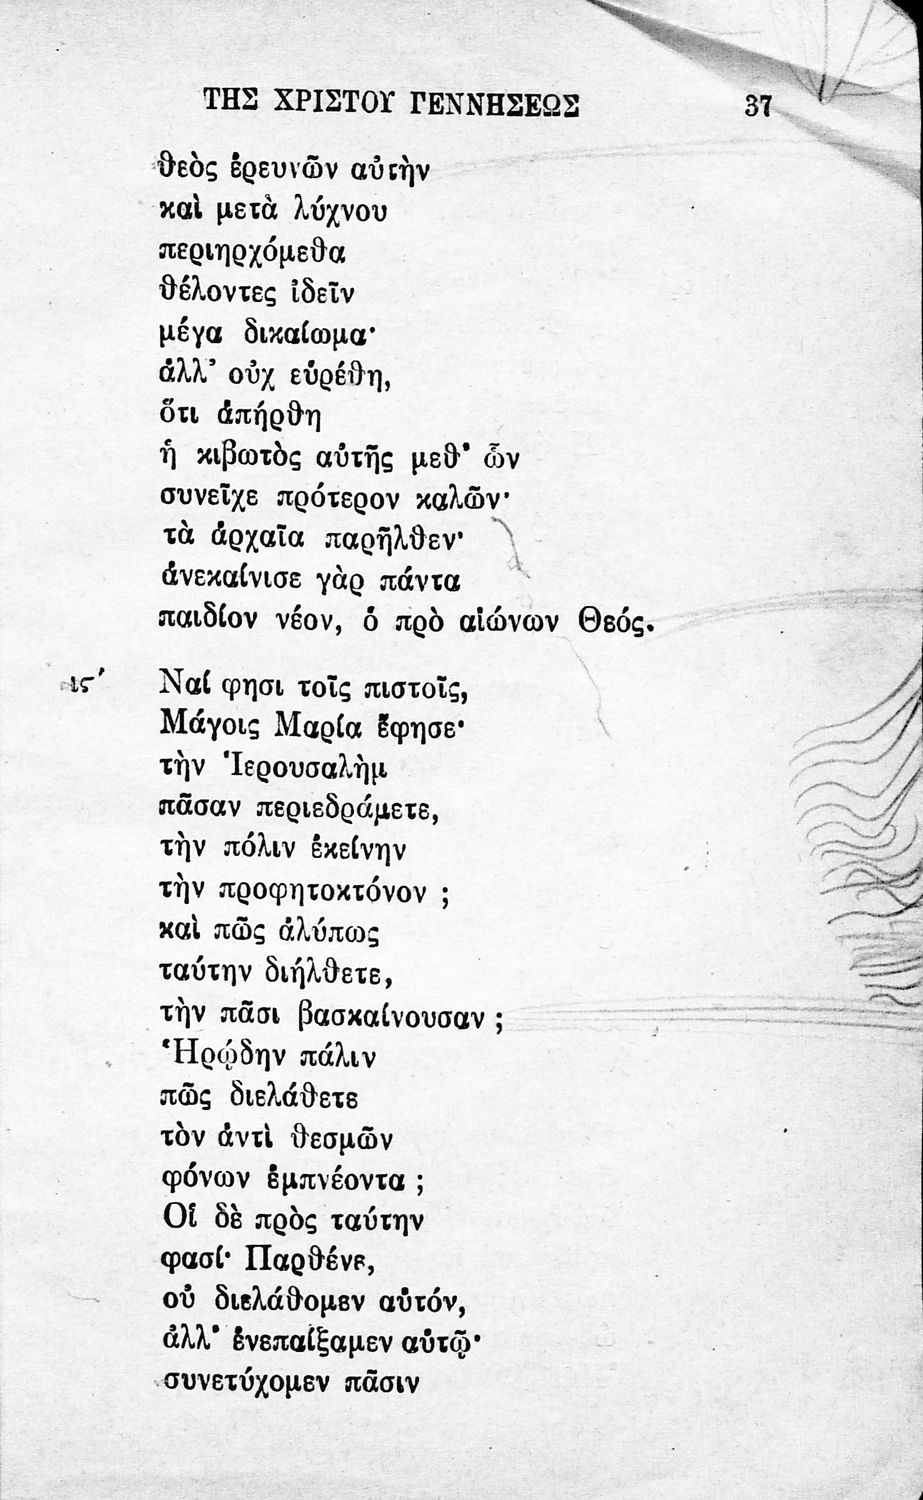 ΤΗΣ ΧΡΙΣΤΟΥ ΓΕΝΝΗΣΕΩΣ 37
θεὸς ἐρευνῶν αὐτὴν
καὶ μετὰ λύχνου
περιηρχόμεθα
θέλοντες ἰδεῖν
μέγα δικαίωμα·
ἀλλ' οὐχ εὑρέθη,
ὅτι ἀπήρθη
ἡ κιβωτὸς αὐτῆς μεθ' ὧν
συνεῖχε πρότερον καλῶν·
τὰ ἀρχαῖα παρῆλθεν·
ἀνεκαίνισε γὰρ πάντα
παιδίον νέον, ὁ πρὸ αἰώνων Θεός.
ιϛ' Ναί φησι τοῖς πιστοῖς,
Μάγοις Μαρία ἔφησε·
τὴν Ἱερουσαλὴμ
πᾶσαν περιεδράμετε,
τὴν πόλιν ἐκείνην
τὴν προφητοκτόνον ;
καὶ πῶς ἀλύπως
ταύτην διήλθετε,
τὴν πᾶσι βασκαίνουσαν ;
Ἡρῴδην πάλιν
πῶς διελάθετε
τὸν ἀντὶ θεσμῶν
φόνων ἐμπνέοντα ;
Οἱ δὲ πρὸς ταύτην
φασί· Παρθένε,
οὐ διελάθομεν αὐτόν,
ἀλλ' ἐνεπαίξαμεν αὐτῷ·
συνετύχομεν πᾶσιν